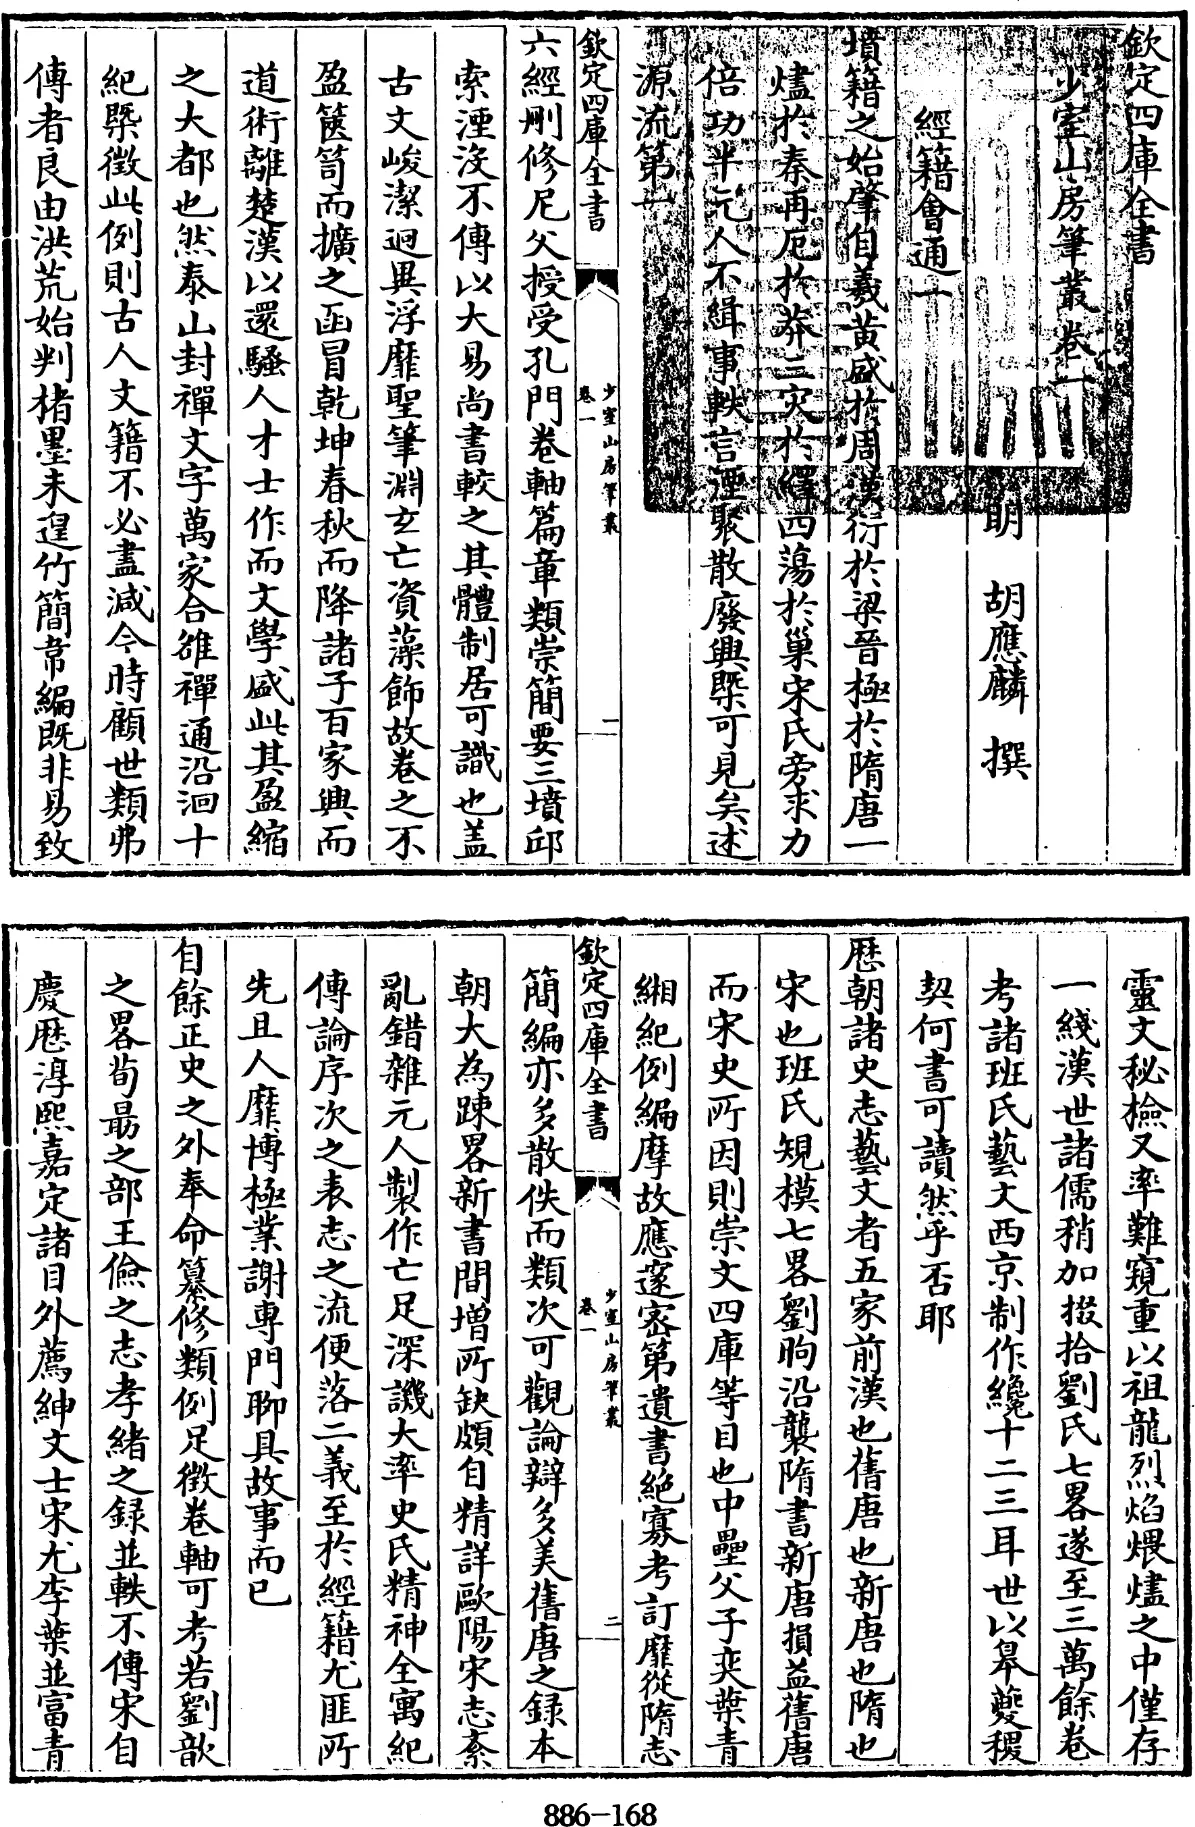 欽定四庫全書
少室山房筆叢卷一
明 胡應麟 撰
經籍會通一
墳籍之始肇自羲黃盛於周漢衍於梁晉極於隋唐一
燼於秦再厄於莽三灾於繹四蕩於巢宋氏旁求力
倍功半元人不緝事軼言湮聚散廢興槩可見矣述
源流第一
欽定四庫全書
少室山房筆叢
卷一
一
六經刪修尼父授受孔門卷軸篇章類崇簡要三墳邱
索湮沒不傳以大易尚書較之其體制居可識也盖
古文峻潔迥異浮靡聖筆淵玄亡資藻飾故卷之不
盈篋笥而擴之函冒乾坤春秋而降諸子百家興而
道術離楚漢以還騷人才士作而文學盛此其盈縮
之大都也然泰山封禪文字萬家合雒禪通沿洄十
紀槩徵此例則古人文籍不必盡減今時顧世類弗
傳者良由洪荒始判楮墨未遑竹簡韋編既非易致
靈文秘檢又率難窺重以祖龍烈焰煨燼之中僅存
一綫漢世諸儒稍加掇拾劉氏七畧遂至三萬餘卷
考諸班氏藝文西京制作纔十二三耳世以臯夔稷
契何書可讀然乎否耶
歷朝諸史志藝文者五家前漢也舊唐也新唐也隋也
宋也班氏規模七畧劉昫沿襲隋書新唐損益舊唐
而宋史所因則崇文四庫等目也中壘父子奕葉青
緗紀例編摩故應邃密第遺書絶寡考訂靡從隋志
欽定四庫全書
少室山房筆叢
卷一
二
簡編亦多散佚而類次可觀論辯多美舊唐之錄本
朝大為踈畧新書間增所缺頗自精詳歐陽宋志紊
亂錯雜元人製作亡足深譏大率史氏精神全寓紀
傳論序次之表志之流便落二義至於經籍尤匪所
先且人靡博極業謝專門聊具故事而已
自餘正史之外奉命纂修類例足徵卷軸可考若劉歆
之畧荀朂之部王儉之志孝緒之録並軼不傳宋自
慶歷淳熙嘉定諸目外薦紳文士宋尤李葉並富青
886-168